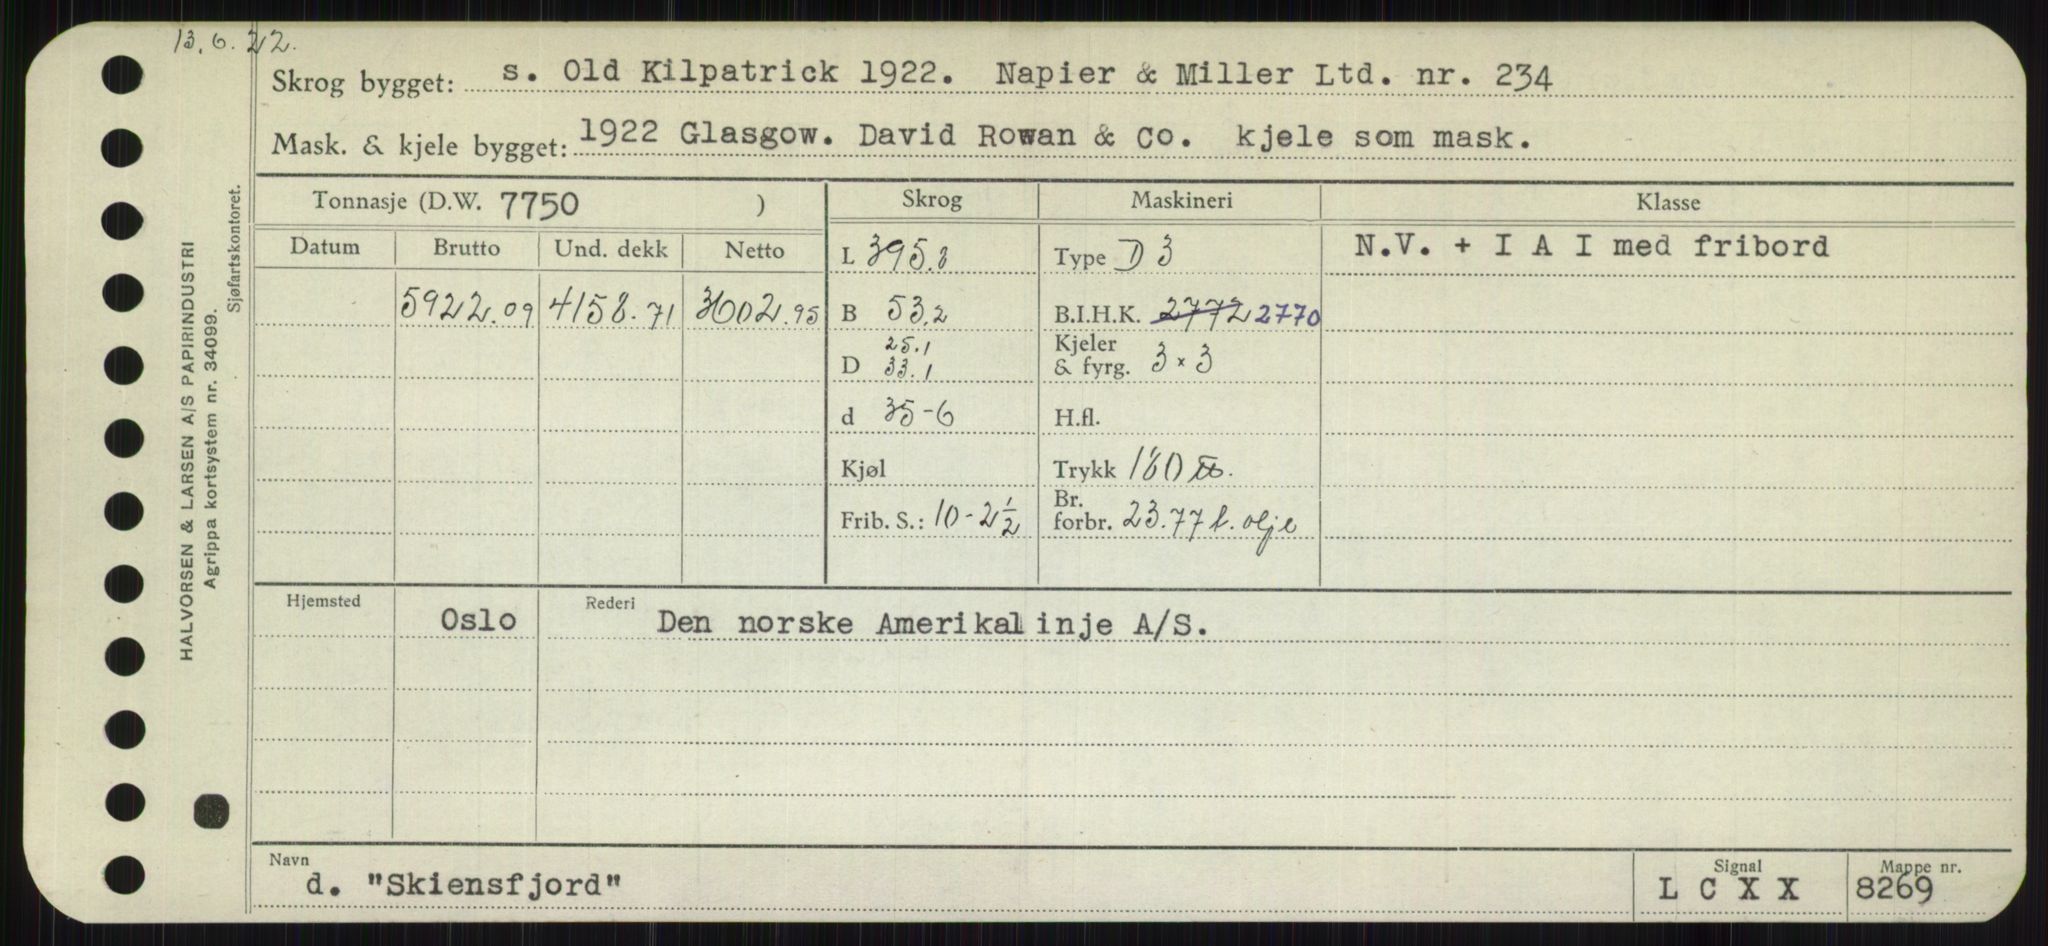 13.6.22.
Skrog bygget: s. Old Kilpatrick 1922. Napier & Miller Ltd. nr. 234
Mask. & kjele bygget: 1922 Glasgow. David Rowan & Co. kjele som mask.
Tonnasje (D.W. 7750 ) Skrog Maskineri Klasse
Datum Brutto Und. dekk Netto L 395.8 Type D 3 N.V. + I A I med fribord
5922.09 4158.71 3602.95 B 53.2 B.I.H.K. 2772 2770
D 25.1 33.1 Kjeler & fyrg. 3 × 3
d 35-6 H.fl.
Kjøl Trykk 180
Frib. S.: 10-2½ Br. forbr. 23.77 t. olje
Hjemsted Oslo Rederi Den norske Amerikalinje A/S.
Navn d. "Skiensfjord" Signal L C X X Mappe nr. 8269
HALVORSEN & LARSEN A/S PAPIRINDUSTRI
Agrippa kortsystem nr. 34099.
Sjøfartskontoret.